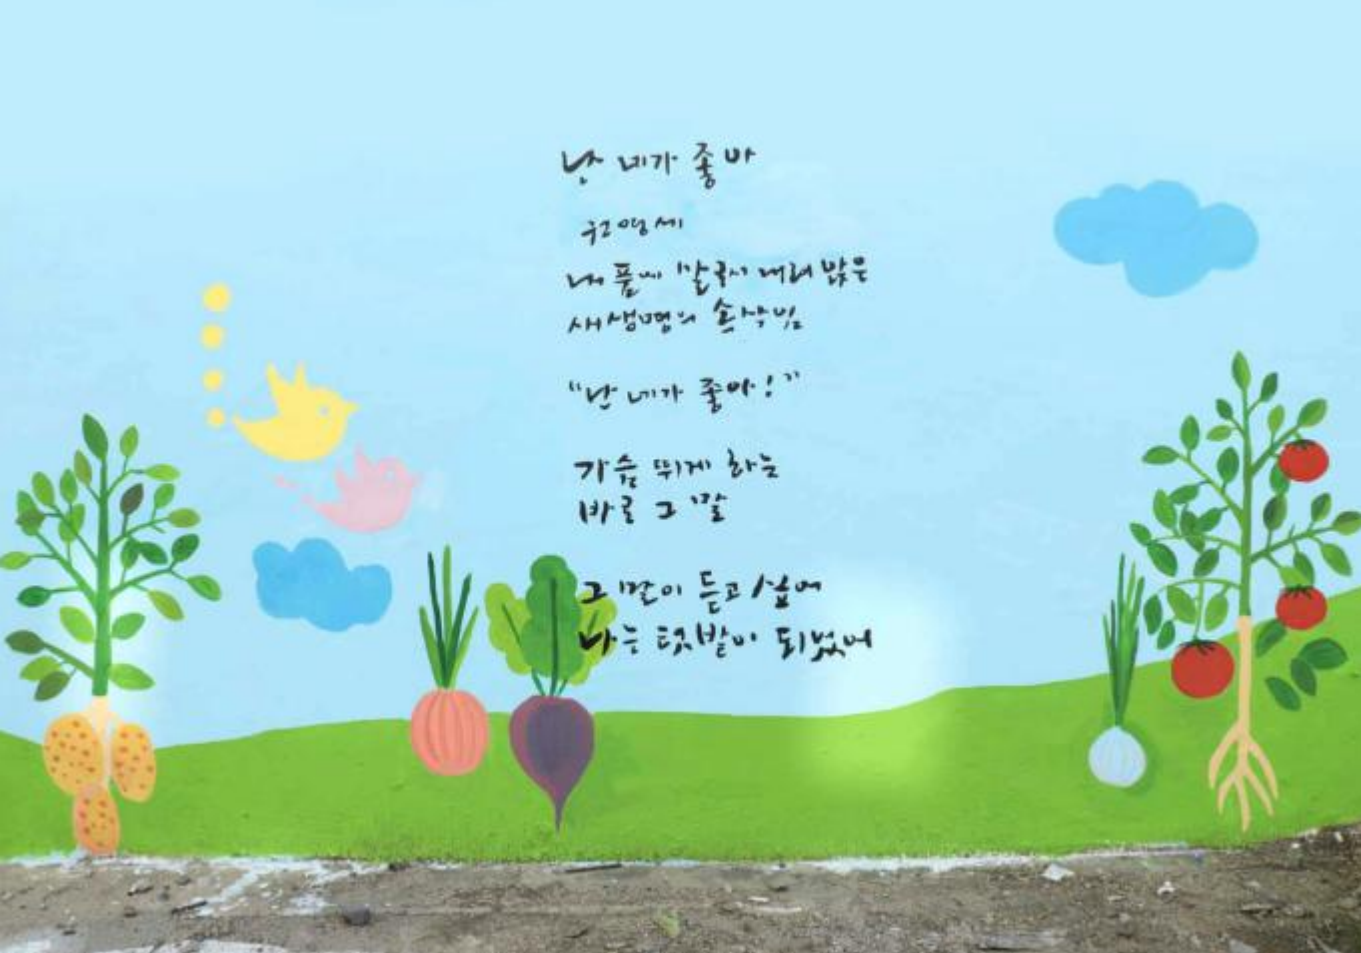 난 네가 좋아
권영세
내 품에 살며시 내려 앉은
새 생명의 손짓
"난 네가 좋아!"
가슴 뛰게 하는
바로 그 말
그 말이 듣고 싶어
나는 텃밭이 되었어